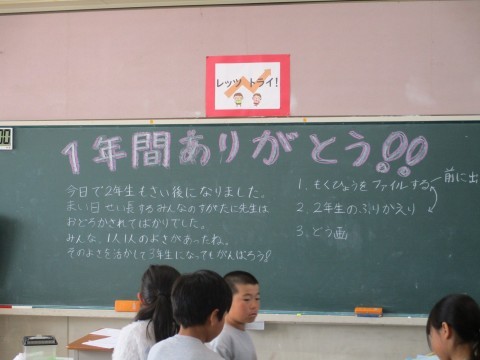 レッツ トライ!
1年間ありがとう!!
今日で2年生もさい後になりました。
まい日せい長するみんなのすがたに先生は
おどろかされてばかりでした。
みんな、1人1人のよさがあったね。
そのよさを活かして3年生になってもがんばろう!
1. もくひょうをファイルする
前に出
2. 2年生のふりかえり
3. どう画
00